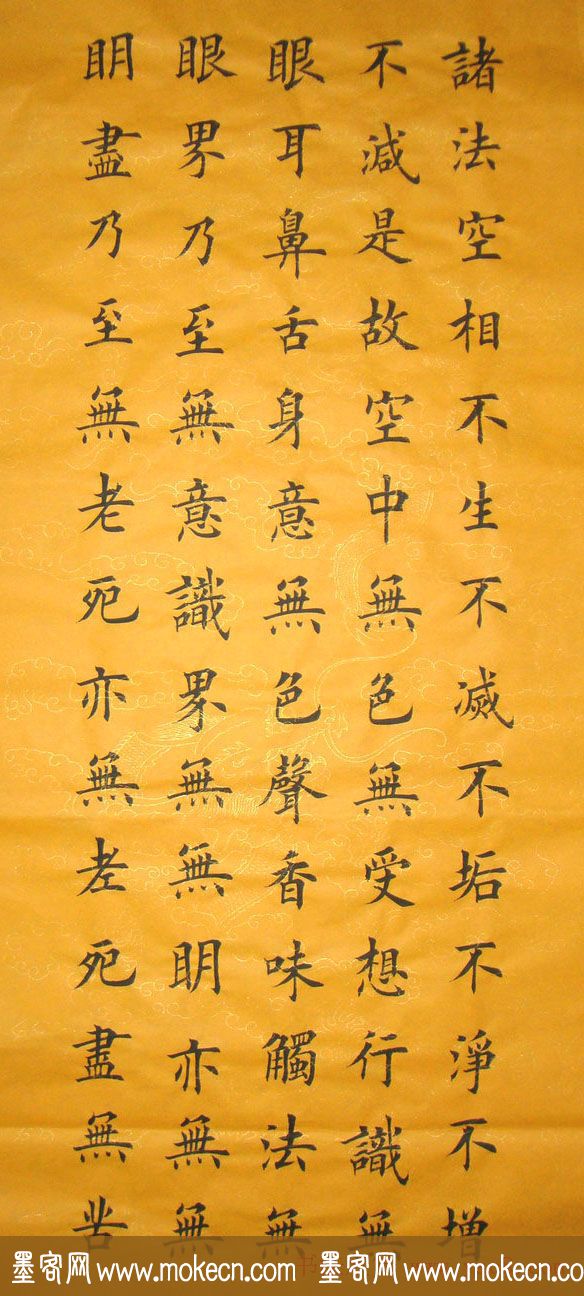 諸法空相不生不滅不垢不淨不增
不減是故空中無色無受想行識無
眼耳鼻舌身意無色聲香味觸法無
眼界乃至無意識界無無明亦無無
明盡乃至無老死亦無老死盡無苦
墨客网 www.mokecn.com 墨客网 www.mokecn.co